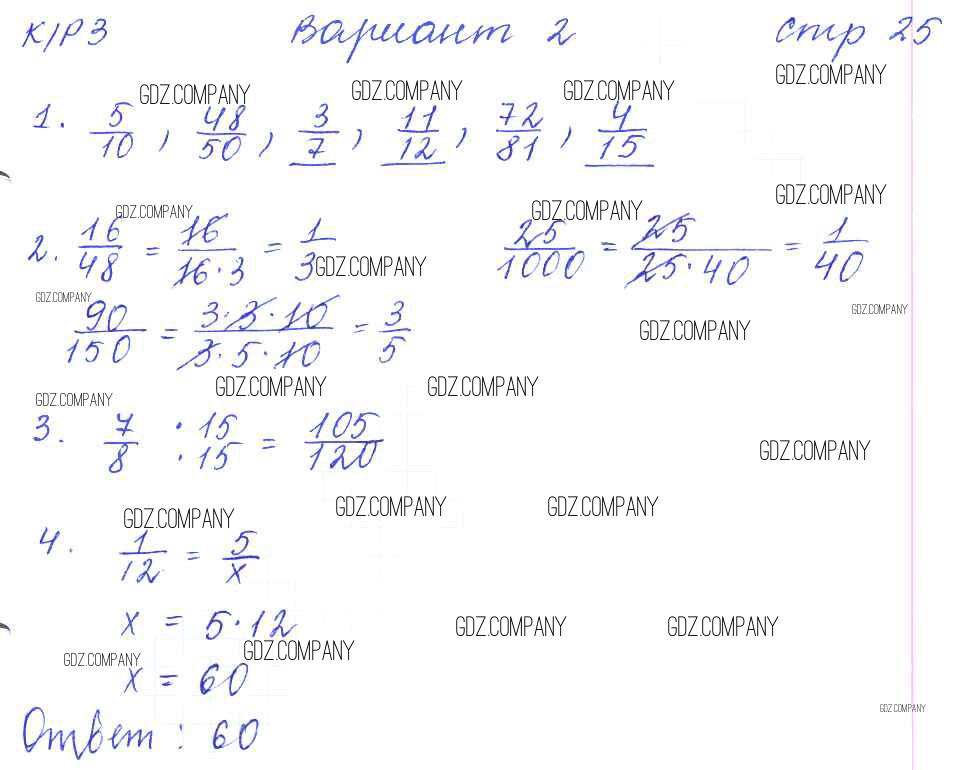 К/Р 3 Вариант 2 Стр 25
GDZ.COMPANY
GDZ.COMPANY GDZ.COMPANY GDZ.COMPANY
1. 5/10, 48/50, 3/7, 11/12, 72/81, 4/15
GDZ.COMPANY
GDZ.COMPANY GDZ.COMPANY
2. 16/48 = 16/16·3 = 1/3 25/1000 = 25/25·40 = 1/40
GDZ.COMPANY
GDZ.COMPANY GDZ.COMPANY
90/150 = 3·3·10/3·5·10 = 3/5
GDZ.COMPANY
GDZ.COMPANY GDZ.COMPANY
GDZ.COMPANY
3. 7/8 ·15/·15 = 105/120
GDZ.COMPANY
GDZ.COMPANY GDZ.COMPANY GDZ.COMPANY
4. 1/12 = 5/x
x = 5·12
GDZ.COMPANY GDZ.COMPANY
GDZ.COMPANY GDZ.COMPANY
x = 60
GDZ.COMPANY
Ответ: 60